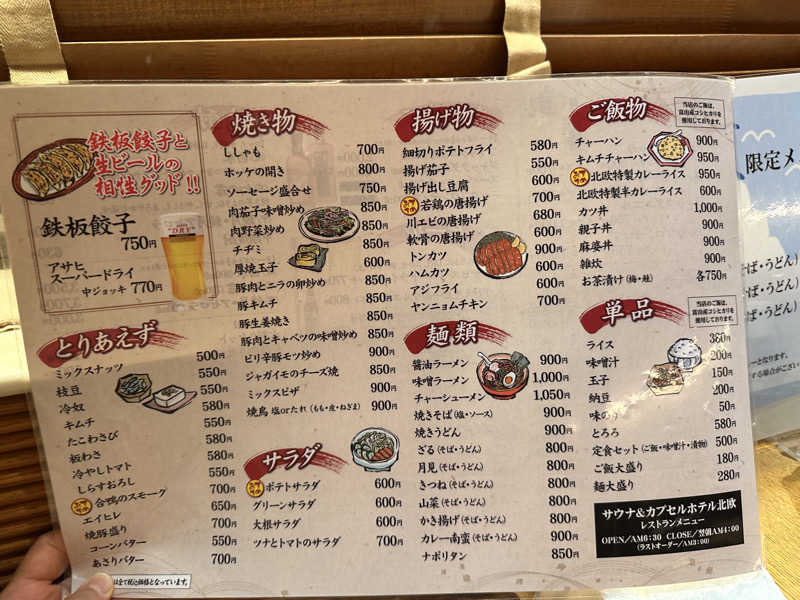 鉄板餃子と
生ビールの
相性グッド!!
鉄板餃子
750円
アサヒ
スーパードライ
中ジョッキ 770円
とりあえず
ミックスナッツ 500円
枝豆 550円
冷奴 550円
キムチ 580円
たこわさび 550円
板わさ 580円
冷やしトマト 550円
しらすおろし 550円
合鴨のスモーク 700円
エイヒレ 650円
焼豚盛り 700円
コーンバター 550円
あさりバター 700円
は全て税込価格となっています。
焼き物
ししゃも 700円
ホッケの開き 800円
ソーセージ盛合せ 750円
肉茄子味噌炒め 850円
肉野菜炒め 850円
チヂミ 850円
厚焼玉子 600円
豚肉とニラの卵炒め 850円
豚キムチ 850円
豚生姜焼き 850円
豚肉とキャベツの味噌炒め 850円
ピリ辛豚モツ炒め 900円
ジャガイモのチーズ焼 850円
ミックスピザ 900円
焼鳥 塩orたれ(もも・皮・ねぎま) 900円
サラダ
ポテトサラダ 600円
グリーンサラダ 600円
大根サラダ 600円
ツナとトマトのサラダ 700円
揚げ物
細切りポテトフライ 580円
揚げ茄子 550円
揚げ出し豆腐 600円
若鶏の唐揚げ 700円
川エビの唐揚げ 680円
軟骨の唐揚げ 600円
トンカツ 900円
ハムカツ 600円
アジフライ 600円
ヤンニョムチキン 700円
麺類
醤油ラーメン 900円
味噌ラーメン 1,000円
チャーシューメン 1,050円
焼きそば(塩・ソース) 900円
焼きうどん 900円
ざる(そば・うどん) 800円
月見(そば・うどん) 800円
きつね(そば・うどん) 800円
山菜(そば・うどん) 800円
かき揚げ(そば・うどん) 800円
カレー南蛮(そば・うどん) 900円
ナポリタン 850円
ご飯物
当店のご飯は、
富山産コシヒカリを
使用しております。
チャーハン 900円
キムチチャーハン 950円
北欧特製カレーライス 950円
北欧特製半カレーライス 600円
カツ丼 1,000円
親子丼 900円
麻婆丼 900円
雑炊 900円
お茶漬け(梅・鮭) 各750円
単品
当店のご飯は、
富山産コシヒカリを
使用しております。
ライス 360円
味噌汁 200円
玉子 150円
納豆 200円
味のり 50円
とろろ 580円
定食セット(ご飯・味噌汁・漬物) 500円
ご飯大盛り 180円
麺大盛り 280円
サウナ&カプセルホテル北欧
レストランメニュー
OPEN/AM6:30 CLOSE/翌朝AM4:00
(ラストオーダー/AM3:00)
限定メ
そば・うどん)
そば・うどん)
ば・うどん)